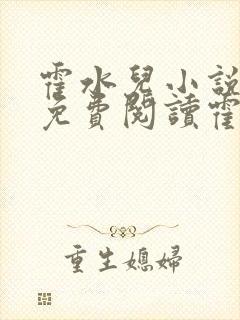 霍水兒小說
免費閱讀霍
重生媳婦